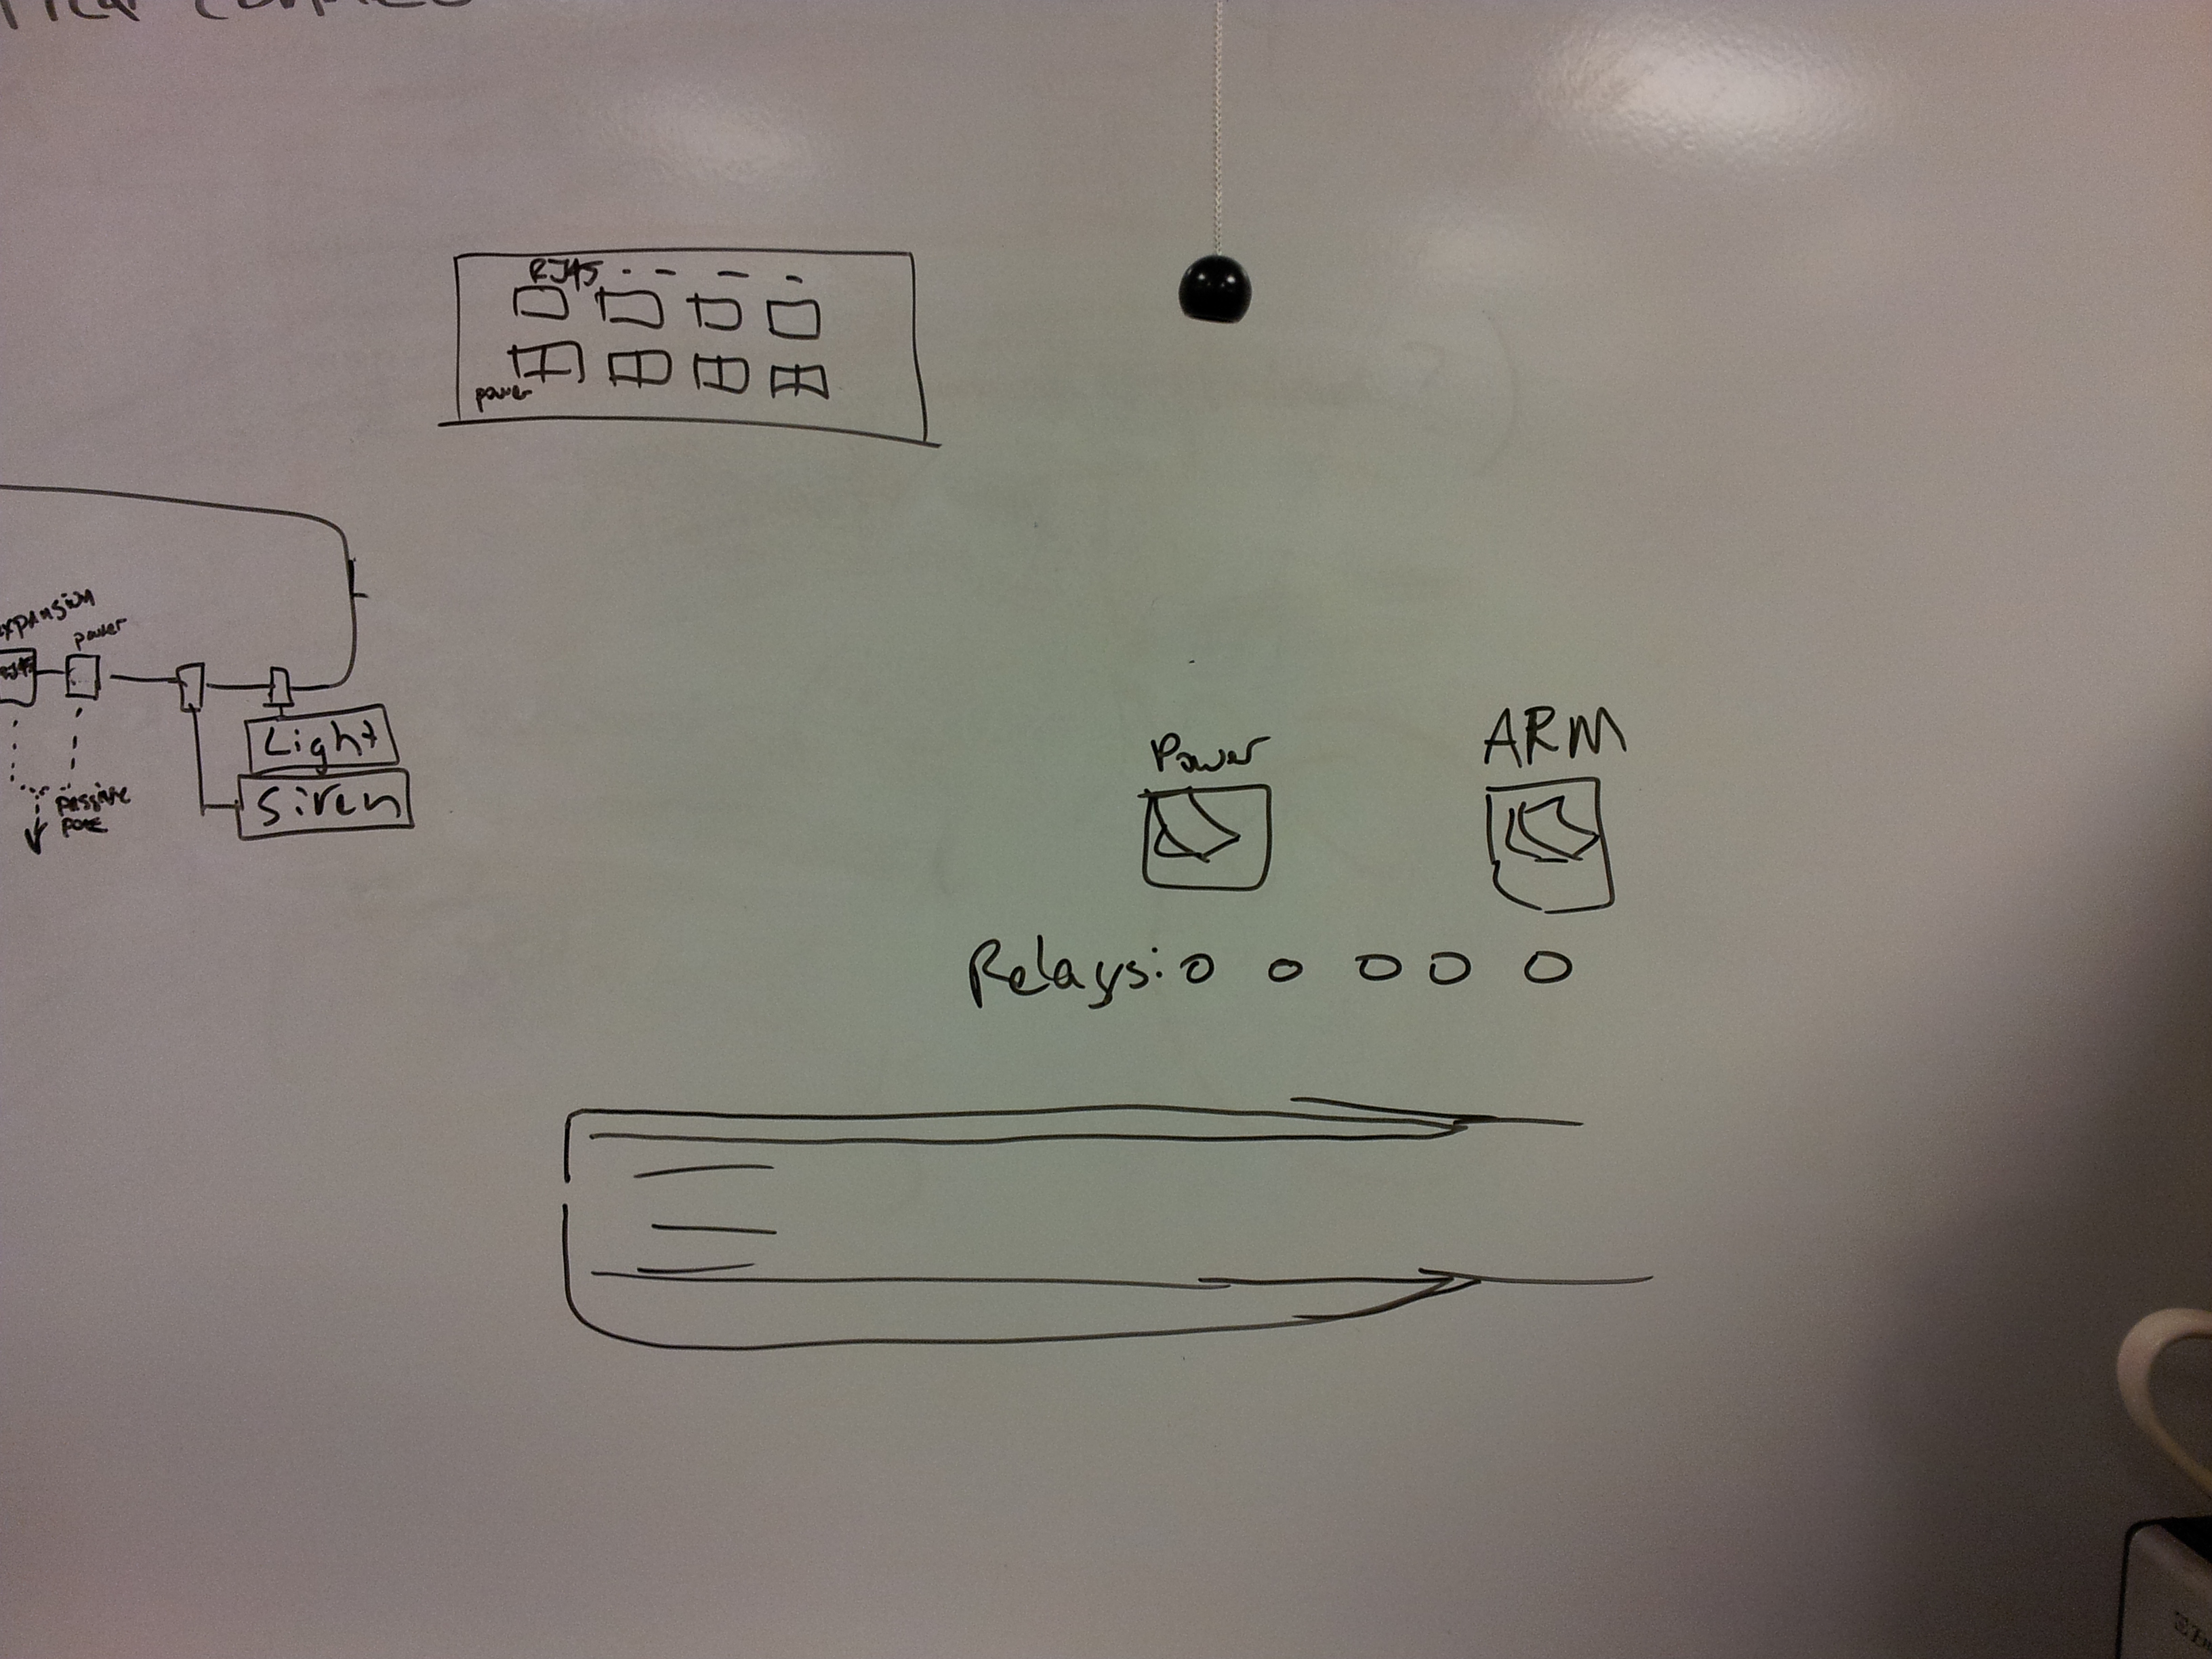 RJ45
power
expansion
power
RJ45
Light
Siren
passive
POE
Power
ARM
Relays: o o o o o